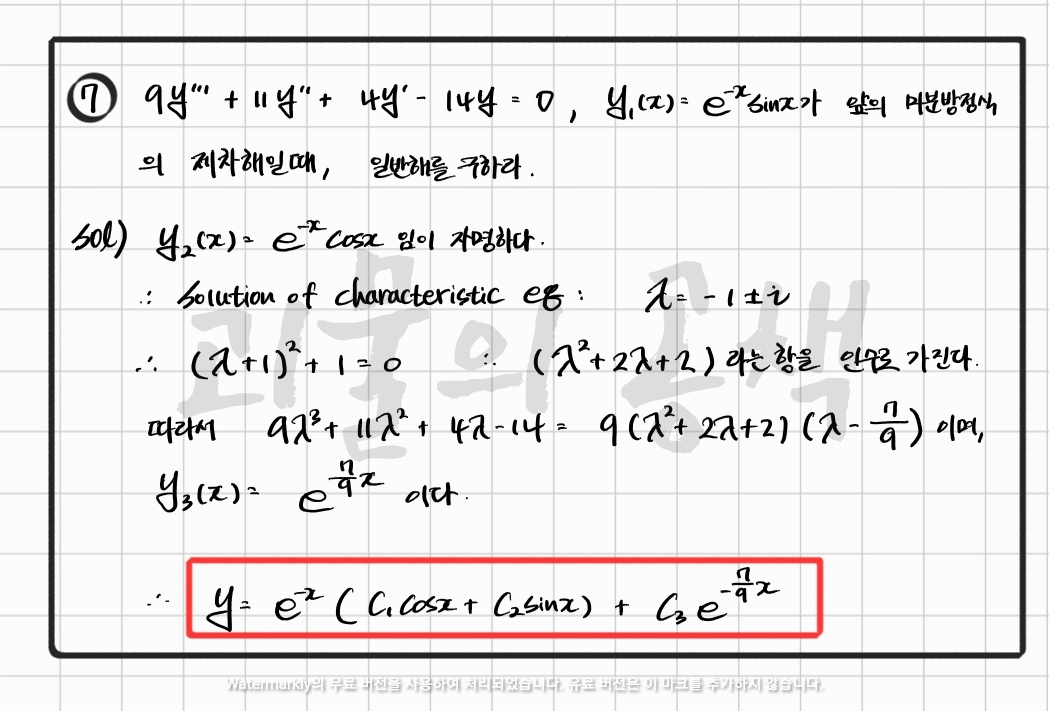 ⑦ 9y''' + 11y'' + 4y' - 14y = 0 , y₁(x) = e^{-x}sinx가 앞의 미분방정식
의 제차해일때, 일반해를 구하라.
sol) y₂(x) = e^{-x}cosx 임이 자명하다.
∴ solution of characteristic eq : λ = -1 ± i
∴ (λ+1)² + 1 = 0 ∴ (λ²+2λ+2) 라는 항을 인수로 가진다.
따라서 9λ³ + 11λ² + 4λ - 14 = 9(λ² + 2λ+2)(λ - 7/9) 이며,
y₃(x) = e^{7/9 x} 이다.
∴ y = e^{-x} (C₁cosx + C₂sinx) + C₃e^{-7/9 x}
괴물의 공책
Watermarkly의 무료 버전을 사용하여 처리되었습니다. 유료 버전은 이 마크를 추가하지 않습니다.